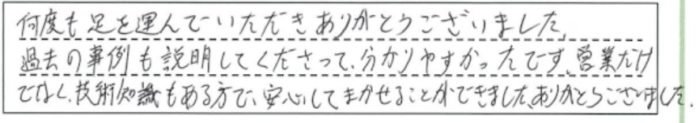 何度も足を運んでいただきありがとうございました。
過去の事例も説明してくださって、分かりやすかったです。営業だけ
でなく、技術知識もある方で、安心してまかせることができました。ありがとうございました。